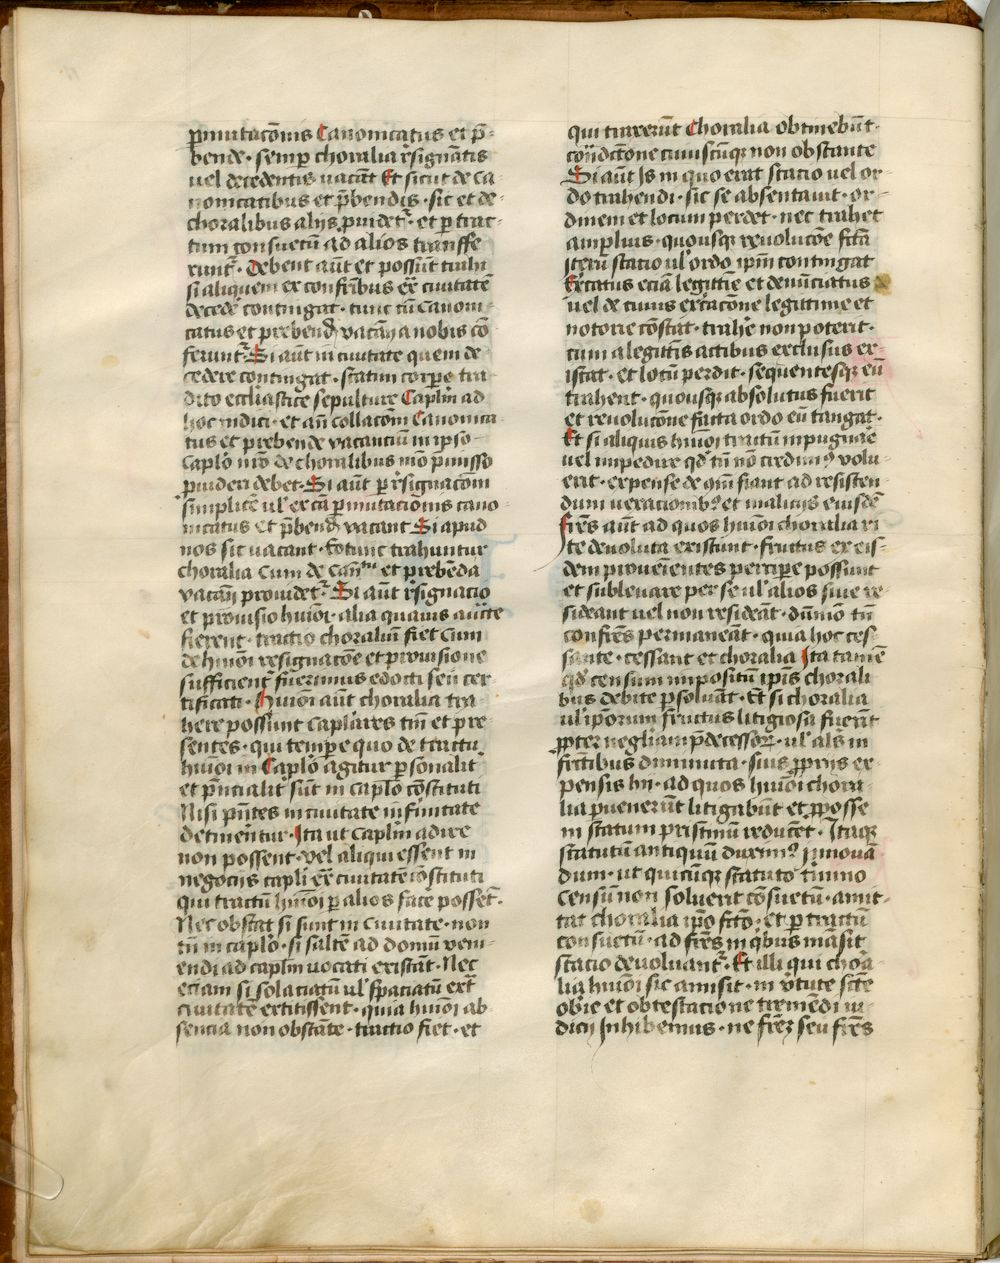 p̱mutac̄onis Canonicatus et p̄-
bende · semp̱ choralia r̄signātis
uel decedentis vacāt Et sicut de ca
nonicatibus et p̄bendis · sic et de
choralibus alijs p̱uidetʳ · et p̱ trac-
tum consuetū ad alios transffe
runtʳ · Debent aūt et possūt trahi
si aliquem ex confr̄ibus ex̄ ciuitatē
decedē contingat · tunc tn̄ Canoni
catus et prebend̄ vacān̄ a nobis cō
feruntʳ Si aūt in ciuitate quem de
cedere contingat · statim corpe̱ tra
dito eccl̄iastice sepulture Capl̄m ad
hoc indici · et an̄ collacōm Canonica
tus et prebende vacanciū in ipso
Caplō nr̄o de choralibus mō p̄misso
p̱uideri debet · Si aūt p̱ r̄signacōm
simplicē ul' ex cā p̱mutacīonis cano
nicatus et p̄bend̄ vacant Si apud
nos sic vacant · Extunc trahuntur
choralia Cum de can̄ᵗᵘ et prebēda
vacan̄ prouidetʳ Si aūt r̄signacio
et prouisio huiōi · alia quauis auc̄te
fierent · tractio choraliū fiet Cum
de huiōi resignacōe et prouisione
sufficient̄ fuerimus edocti seu cer
tificati · Huiōi aūt choralia tra
here possunt Caplāres tm̄ et pre
sentes · qui tempe̱ quo de tractu
huiōi in Caplō agitur p̱sonalit̄
et p̄ncialit̄ sūt in caplō cōstituti
Nisi p̄ntes in ciuitate īnfirmitate
detinentur · Ita ut Capl̄m adire
non possent · vel aliqui essent in
negocijs capl̄i ex̄ ciuitatē cōstituti
qui tractū huiōi p̱ alios facē posset̄ ·
Nec obstat si sunt in Ciuitate · non
tn̄ in caplō · si saltē ad domū veni-
endi ad capl̄m uocati existāt · Nec
eciam si solaciatū ul' spaciatū ext̄
ciuitatē exitissent · quia huiōi ab
sencia non obstāte · tractio fiet · et
qui traxerūt Choralia obtinebūt ·
cōndicc̄one cuiuscūqꝫ non obstante
Si aūt Is in quo erat stacio uel or-
do trahendi · sic se absentauit · or-
dinem et locum perdet · nec trahet
amplius · quousqꝫ reuolucōe fc̄ta
iterū stacio ul' ordo ip̄m contingat
Ex̄catus eciā legittīe et denūciatus
uel de cuius ex̄cacōne legittime et
notorie cōstat · trahe̱ non poterit ·
cum a legittīs actibus exclusus ex-
istat · et locū perdit · sequentesqꝫ eū
trahent · quousqꝫ absolutus fuerit
et reuolucōne facta ordo eū tangat ·
Et si aliquis huiōi tractū inpugnāē
uel impedire qd̄ tn̄ nō credimꝰ volu-
erit · expense de qm̄ fiant ad resisten-
dum uexacionibꝫ et malicijs eiusdē
Fr̄es aūt ad quos huiōi choralia ri
te deuoluta existunt · fructus ex eis-
dem prouēientes percipe̱ possunt
et subleuare per se ul' alios siue re-
sideant uel non resideāt · dūmō tn̄
confr̄es permaneāt · quia hoc ces-
sante · cessant et choralia Ita tamē
qd̄ censum impositū ip̄is chorali
bus debite p̱soluāt · Et si choralia
ul' ip̄orum fructus litigiosa fuerīt
p̱pter negligām p̄decessorꝝ · ul' als̄ in
fr̄ctibus diminuta · suis p̱prijs ex-
pensis hij · ad quos huiōi chora-
lia p̱uenerūt litigabūt et p̱ posse
in statum pristinū reducēt · Itaqꝫ
statutū antiquū duximꝰ īnouā
dum · ut quicūqꝫ statuto tīmino
Censū non soluerit cōsuetū · amit-
tat choralia ip̄o fc̄to · et p̱ tractū
consuetū · ad fr̄es in qbus māsit
stacio deuoluantʳ · Et illi qui chora-
lia huiōi sic amisit · in v̄tute sc̄te
obīe et obtestacione tremēdi iu-
dicij Inhibemus · ne fr̄eꝫ seu fr̄es